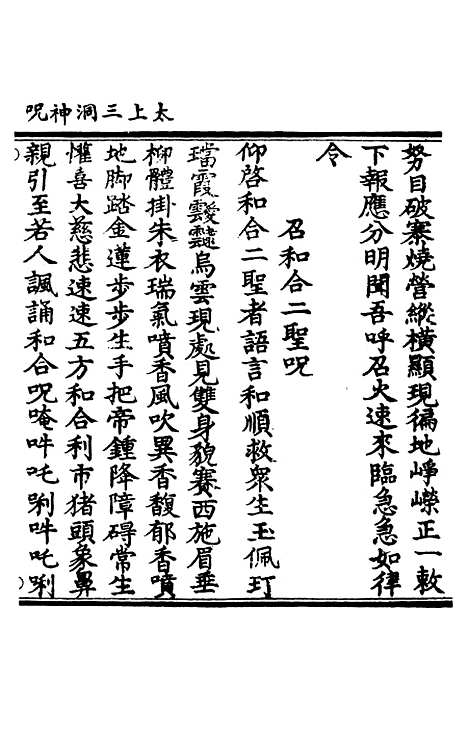 太上三洞神呪
努目破寨燒營縱橫顯現徧地崢嶸正一敕
下報應分明聞吾呼召火速來臨急急如律
令
召和合二聖呪
仰啓和合二聖者語言和順救衆生玉佩玎
璫霞靉靆烏雲現處見雙身貌賽西施眉垂
柳體掛朱衣瑞氣噴香風吹異香馥郁香噴
地脚踏金蓮步步生手把帝鍾降障碍常生
懽喜大慈悲速速五方和合利市猪頭象鼻
親引至若人諷誦和合呪唵吽吒唎吽吒唎